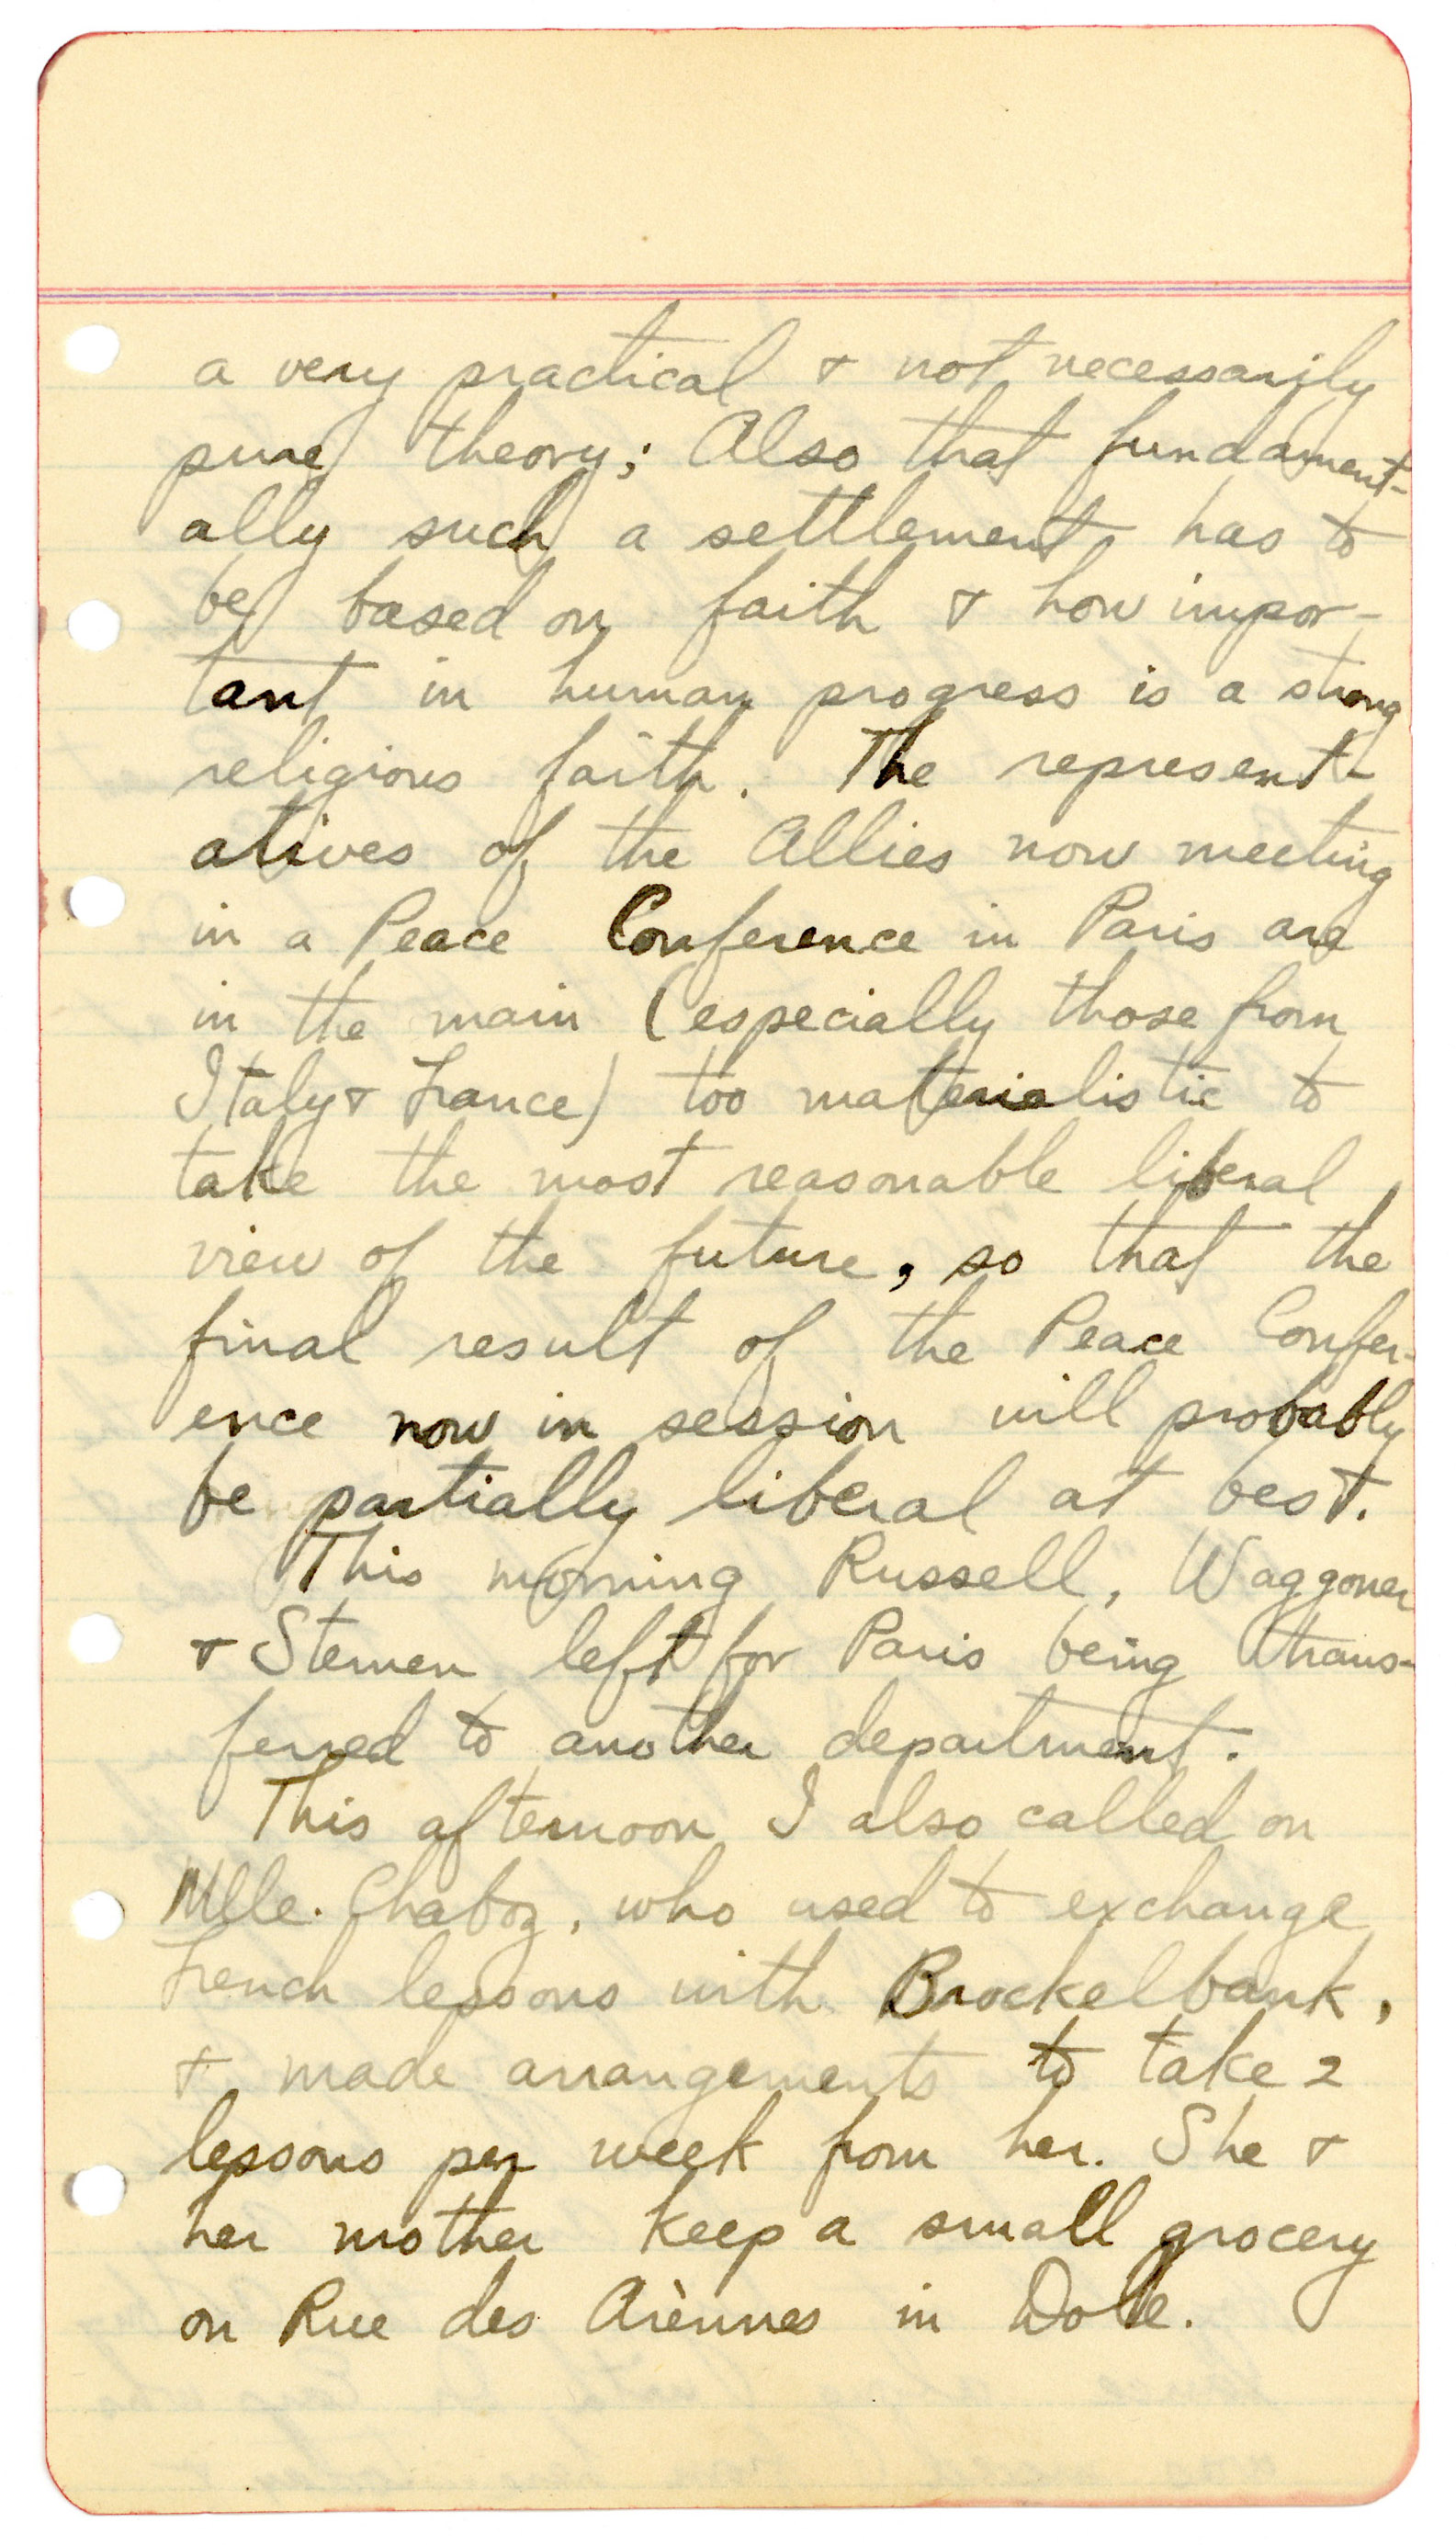 a very practical & not necessarily
pure theory; Also that fundament-
ally such a settlement has to
be based on faith & how impor-
tant in human progress is a strong
religious faith. The represent-
atives of the Allies now meeting
in a Peace Conference in Paris are
in the main (especially those from
Italy & France) too materialistic to
take the most reasonable liberal
view of the future, so that the
final result of the Peace Confer-
ence now in session will probably
be partially liberal at best.
This morning Russell, Waggoner
& Stemen left for Paris being trans-
ferred to another department.
This afternoon I also called on
Mlle. Chaboz, who used to exchange
French lessons with Brockelbank,
& made arrangements to take 2
lessons per week from her. She &
her mother keep a small grocery
on Rue des Arènnes in Dole.